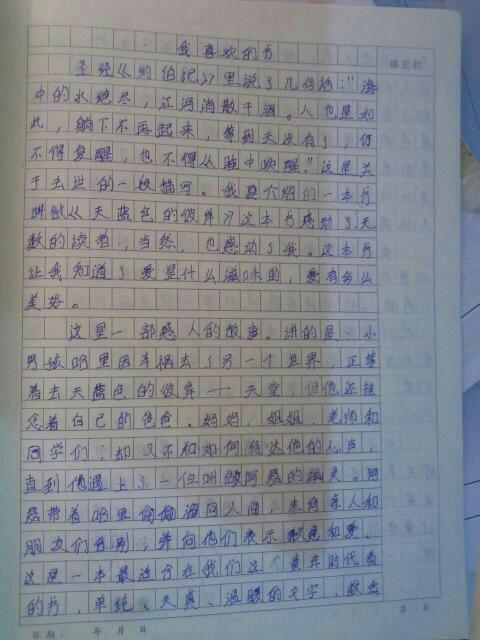 我喜欢的书
修正栏
圣经《约伯记》里说了几句话:"海
中的水绝尽,江河消散干涸。人也是如
此,躺下不再起来,等到天没有了,仍
不得复醒,也不得从睡中唤醒。"这是关
于去世的一段描写。我要介绍的一本书
叫做《天蓝色的彼岸》这本书感动了无
数的读者,当然,也感动了我。这本书
让我知道了爱是什么滋味的,爱有多么
美好。
这是一部感人的故事。讲的是:小
男孩哈里因车祸去了另一个世界,正等
着去天蓝色的彼岸——天堂,但他还挂
念着自己的爸爸、妈妈、姐姐、老师和
同学们,却又不知如何传达他的心声,
直到他遇上了一位叫做阿瑟的幽灵。阿
瑟带着哈里偷偷溜回人间,来向亲人和
朋友们告别,并向他们表示歉意和爱。
这是一本最适合在我们这个童年时代看
的书,单纯、天真、温暖的文字,教会
日期: 年 月 日
第 页